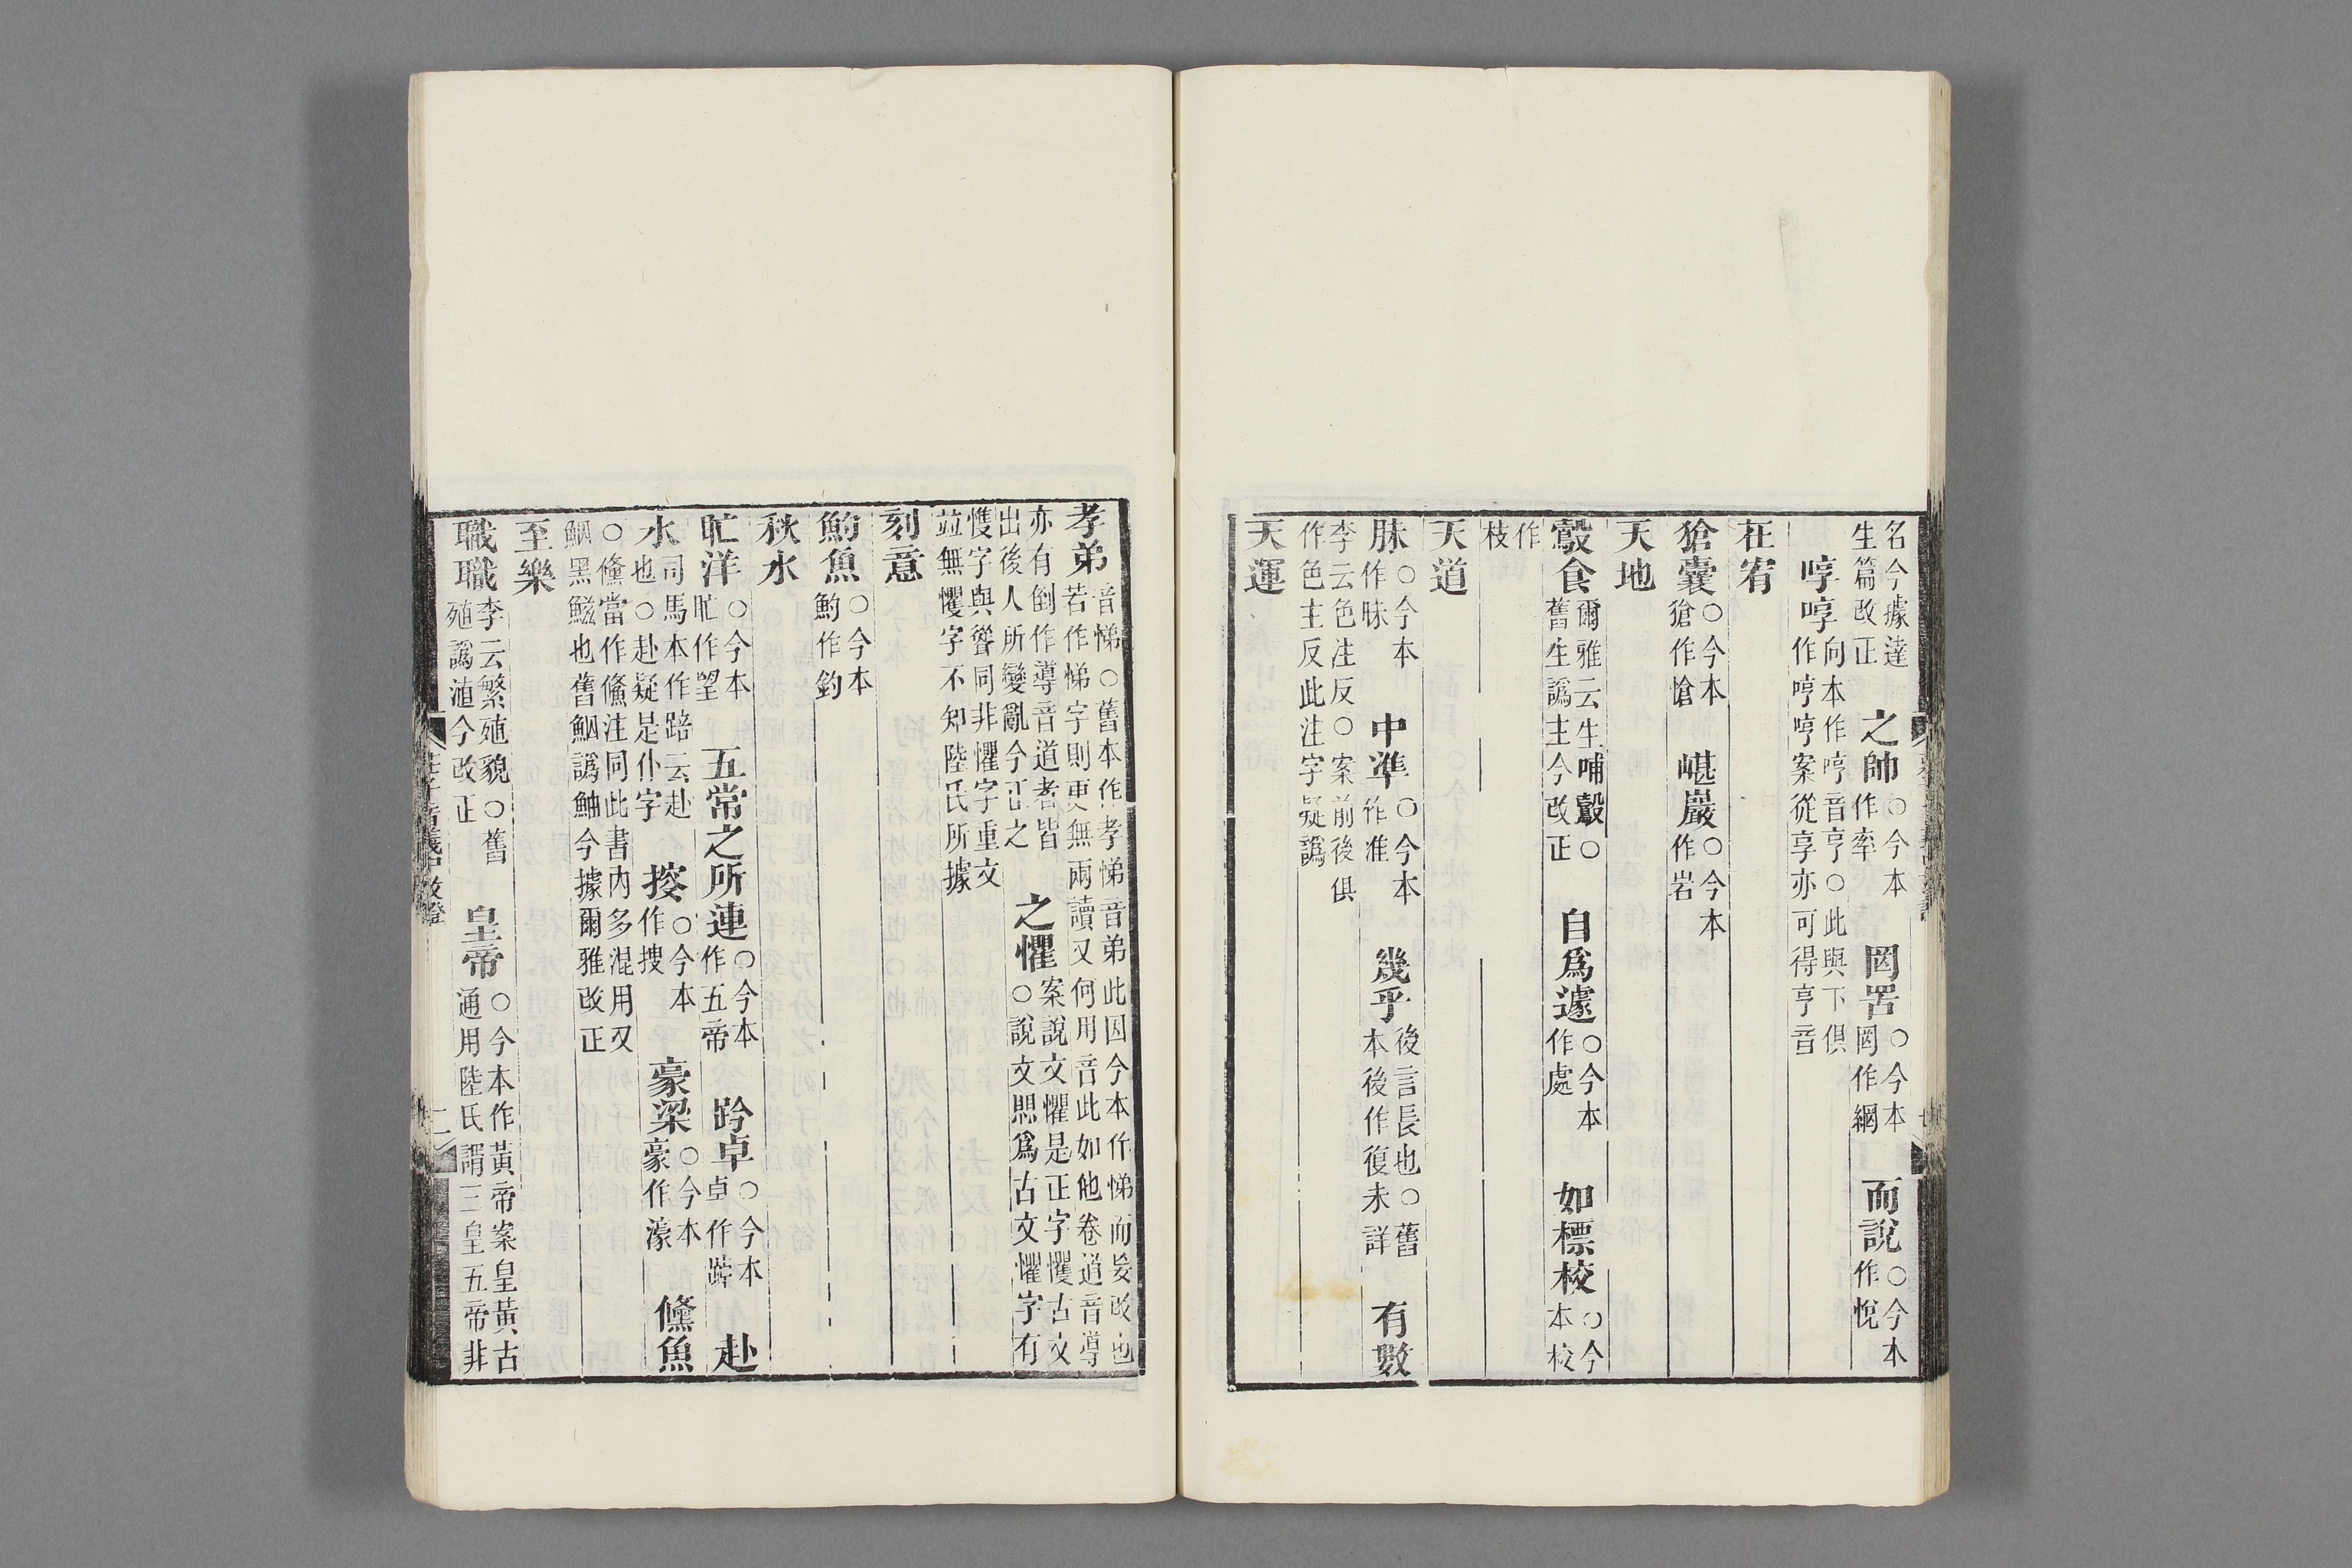 名今據達生篇改正 之帥○今本作率 罔罟○今本罔作網 而說○今本作悅
啍啍向本作哼音亨○此與下俱作哼哼案從享亦可得亨音
在宥
獊囊○今本獊作愴 嵁巖○今本作岩
天地
鷇食爾雅云生哺鷇○舊生譌主今改正 自爲遽○今本作處 如標校○今本校
作枝
天道
脒○今本作昧 中準○今本作准 幾乎後言長也○舊本後作復未詳 有數
李云色注反○案前後俱作色主反此注字疑譌
天運
孝弟音悌○舊本作孝悌音弟此因今本作悌而妄改也若作悌字則更無兩讀又何用音此如他卷道音導
亦有倒作導音道者皆出後人所變亂今正之 之懼案說文懼是正字愳古文○說文愳爲古文懼字有
戄字與聳同非懼字重文並無戄字不知陸氏所據
刻意
魡魚○今本魡作釣
秋水
盳洋○今本盳作望 五常之所連○今本作五帝 趻卓○今本卓作踔 赴
水司馬本作踣云赴也○赴疑是仆字 挍○今本作搜 豪梁○今本豪作濠 儵魚
○儵當作鯈注同此書內多混用又鮂黑鰦也舊鮂譌鮋今據爾雅改正
至樂
職職李云繁殖貌○舊殖譌湞今改正 皇帝○今本作黃帝案皇黃古通用陸氏謂三皇五帝非